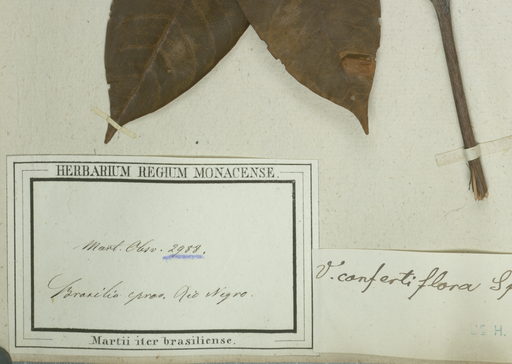 HERBARIUM REGIUM MONACENSE.
Mart. Obs. 2988.
Brasilia prov. Rio Negro.
Martii iter brasiliense.
V. confertiflora Sp
H.